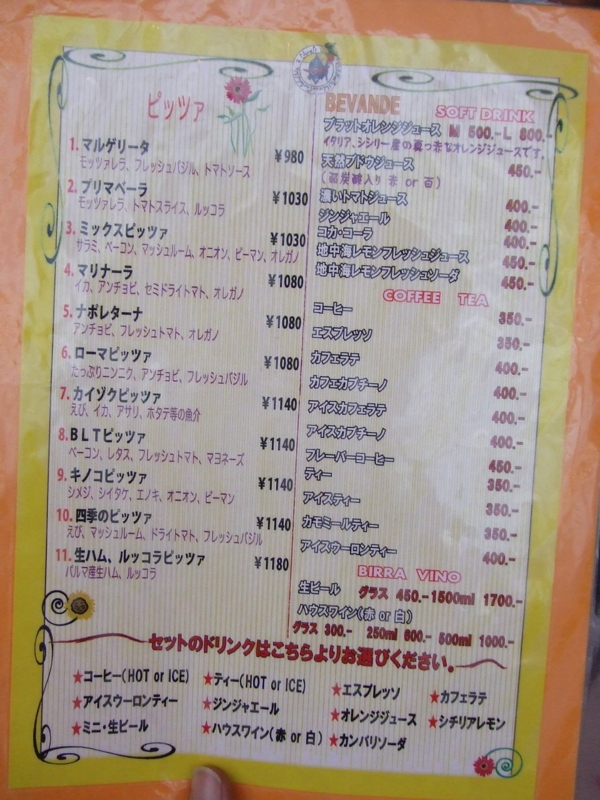 ピッツァ
1. マルゲリータ ¥980
モッツァレラ、フレッシュバジル、トマトソース
2. プリマベーラ ¥1030
モッツァレラ、トマトスライス、ルッコラ
3. ミックスピッツァ ¥1030
サラミ、ベーコン、マッシュルーム、オニオン、ピーマン、オレガノ
4. マリナーラ ¥1080
イカ、アンチョビ、セミドライトマト、オレガノ
5. ナポレターナ ¥1080
アンチョビ、フレッシュトマト、オレガノ
6. ローマピッツァ ¥1080
たっぷりニンニク、アンチョビ、フレッシュバジル
7. カイゾクピッツァ ¥1140
えび、イカ、アサリ、ホタテ等の魚介
8. BLTピッツァ ¥1140
ベーコン、レタス、フレッシュトマト、マヨネーズ
9. キノコピッツァ ¥1140
シメジ、シイタケ、エノキ、オニオン、ピーマン
10. 四季のピッツァ ¥1140
えび、マッシュルーム、ドライトマト、フレッシュバジル
11. 生ハム、ルッコラピッツァ ¥1180
パルマ産生ハム、ルッコラ
BEVANDE SOFT DRINK
ブラットオレンジジュース M 500.- L 800.-
イタリア、シシリー産の真っ赤なオレンジジュースです。
天然ブドウジュース 450.-
赤 or 白)
濃いトマトジュース 400.-
ジンジャエール 400.-
コカ・コーラ 400.-
地中海レモンフレッシュジュース 450.-
地中海レモンフレッシュソーダ 450.-
COFFEE TEA
コーヒー 350.-
エスプレッソ 350.-
カフェラテ 400.-
カフェカプチーノ 400.-
アイスカフェラテ 400.-
アイスカプチーノ 400.-
フレーバーコーヒー 450.-
ティー 350.-
アイスティー 350.-
カモミールティー 350.-
アイスウーロンティー 400.-
BIRRA VINO
生ビール グラス 450.- 1500ml 1700.-
ハウスワイン(赤 or 白)
グラス 300.- 250ml 600.- 500ml 1000.-
セットのドリンクはこちらよりお選びください。
★コーヒー(HOT or ICE) ★ティー(HOT or ICE) ★エスプレッソ ★カフェラテ
★アイスウーロンティー ★ジンジャエール ★オレンジジュース ★シチリアレモン
★ミニ・生ビール ★ハウスワイン(赤 or 白) ★カンパリソーダ